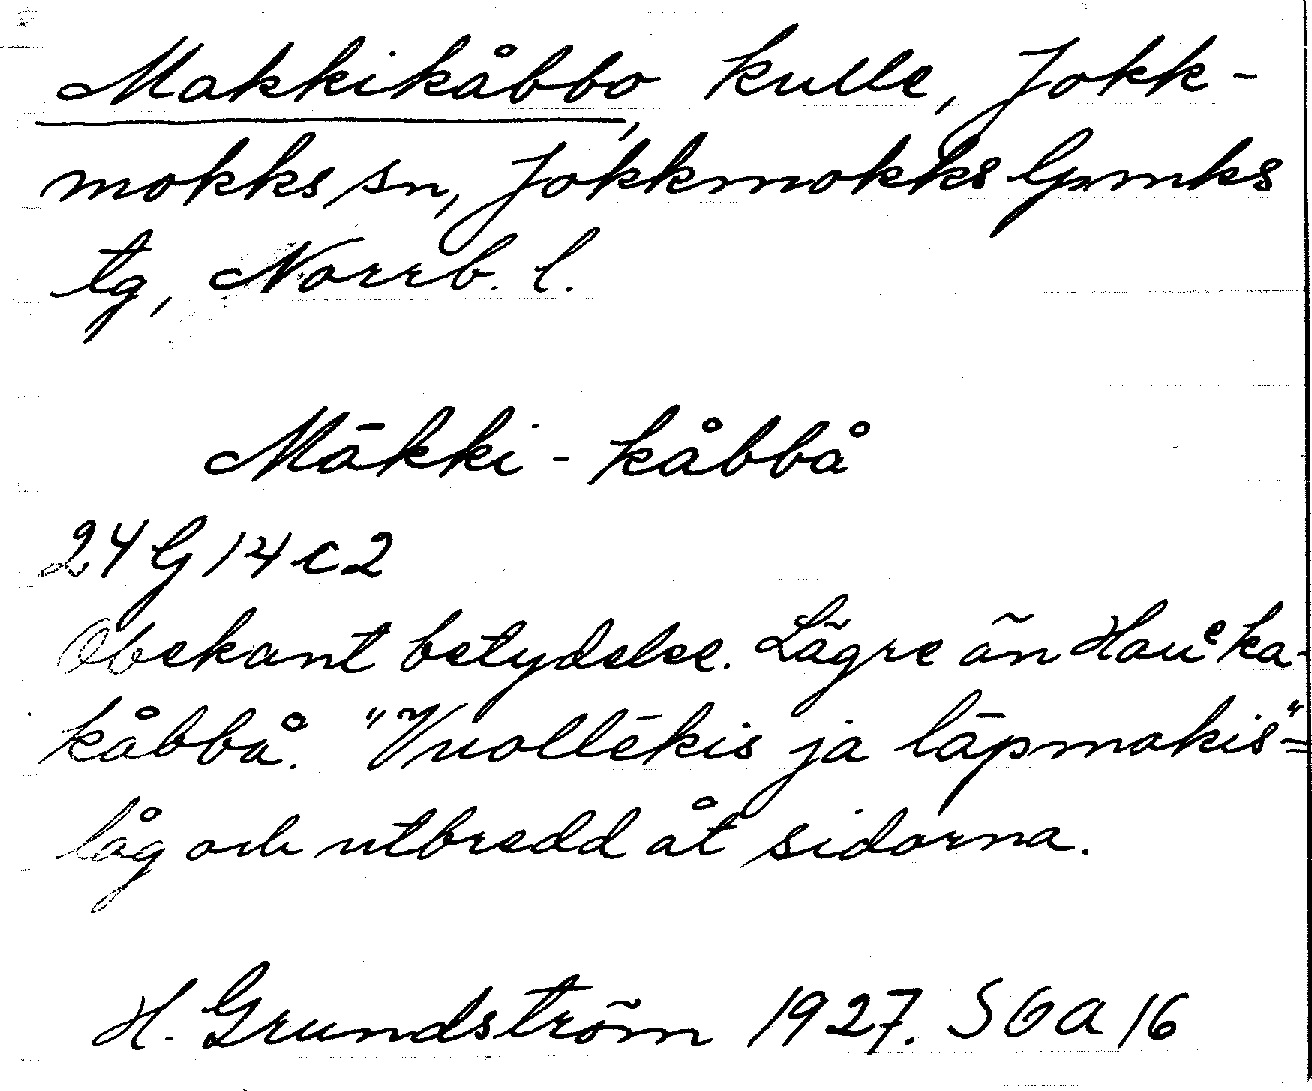 Makkikåbbo, kulle, Jokk-
mokks sn, Jokkmokks lpmks
tg, Norrb. l.
Mākki - kåbbå
24 G 14 c 2
Obekant betydelse. Lägre än Hauᵉka-
kåbbå. "Vuollēkis ja lāpmakis" =
låg och utbredd åt sidorna.
H. Grundström 1927. SOA 16